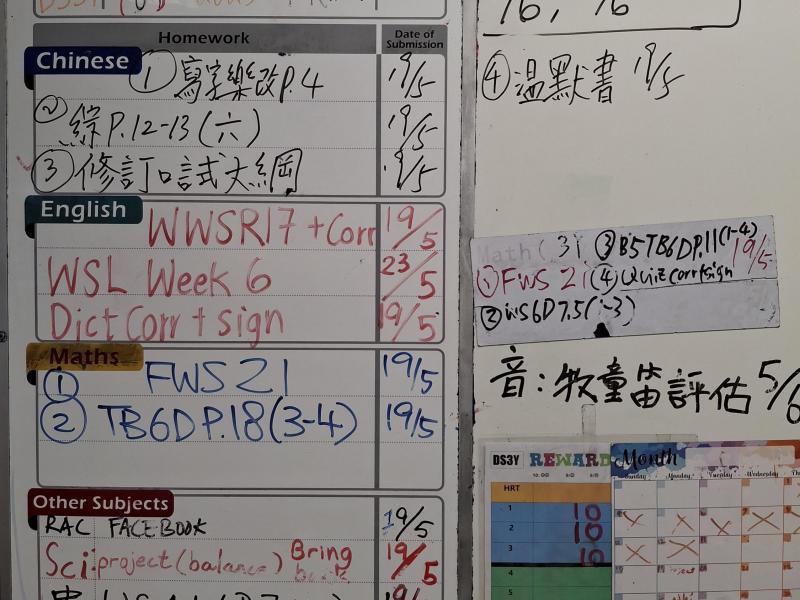 16, 16
Homework
Date of Submission
Chinese
① 寫字樂改P.4 19/5
② 綜P.12-13(六) 19/5
③ 修訂口試大綱 19/5
④ 溫默書 19/5
English
WWSR17 + Corr 19/5
WSL Week 6 23/5
Dict Corr + sign 19/5
Maths
① FWS 21 19/5
② TB6D P.18(3-4) 19/5
Other Subjects
RAC FACEBOOK 19/5
Sci: project (balance) Bring 19/5
Math (3) ③ B5 TB6D P.11(1-4) 19/5
① FWS 21 (4) Quiz corr+sign
② WS6D 7.5(1-3)
音：牧童笛評估 5/6
DS3Y REWARD
HRT
1 10
2 10
3 10
4
5
Month
Sunday Monday Tuesday Wednesday